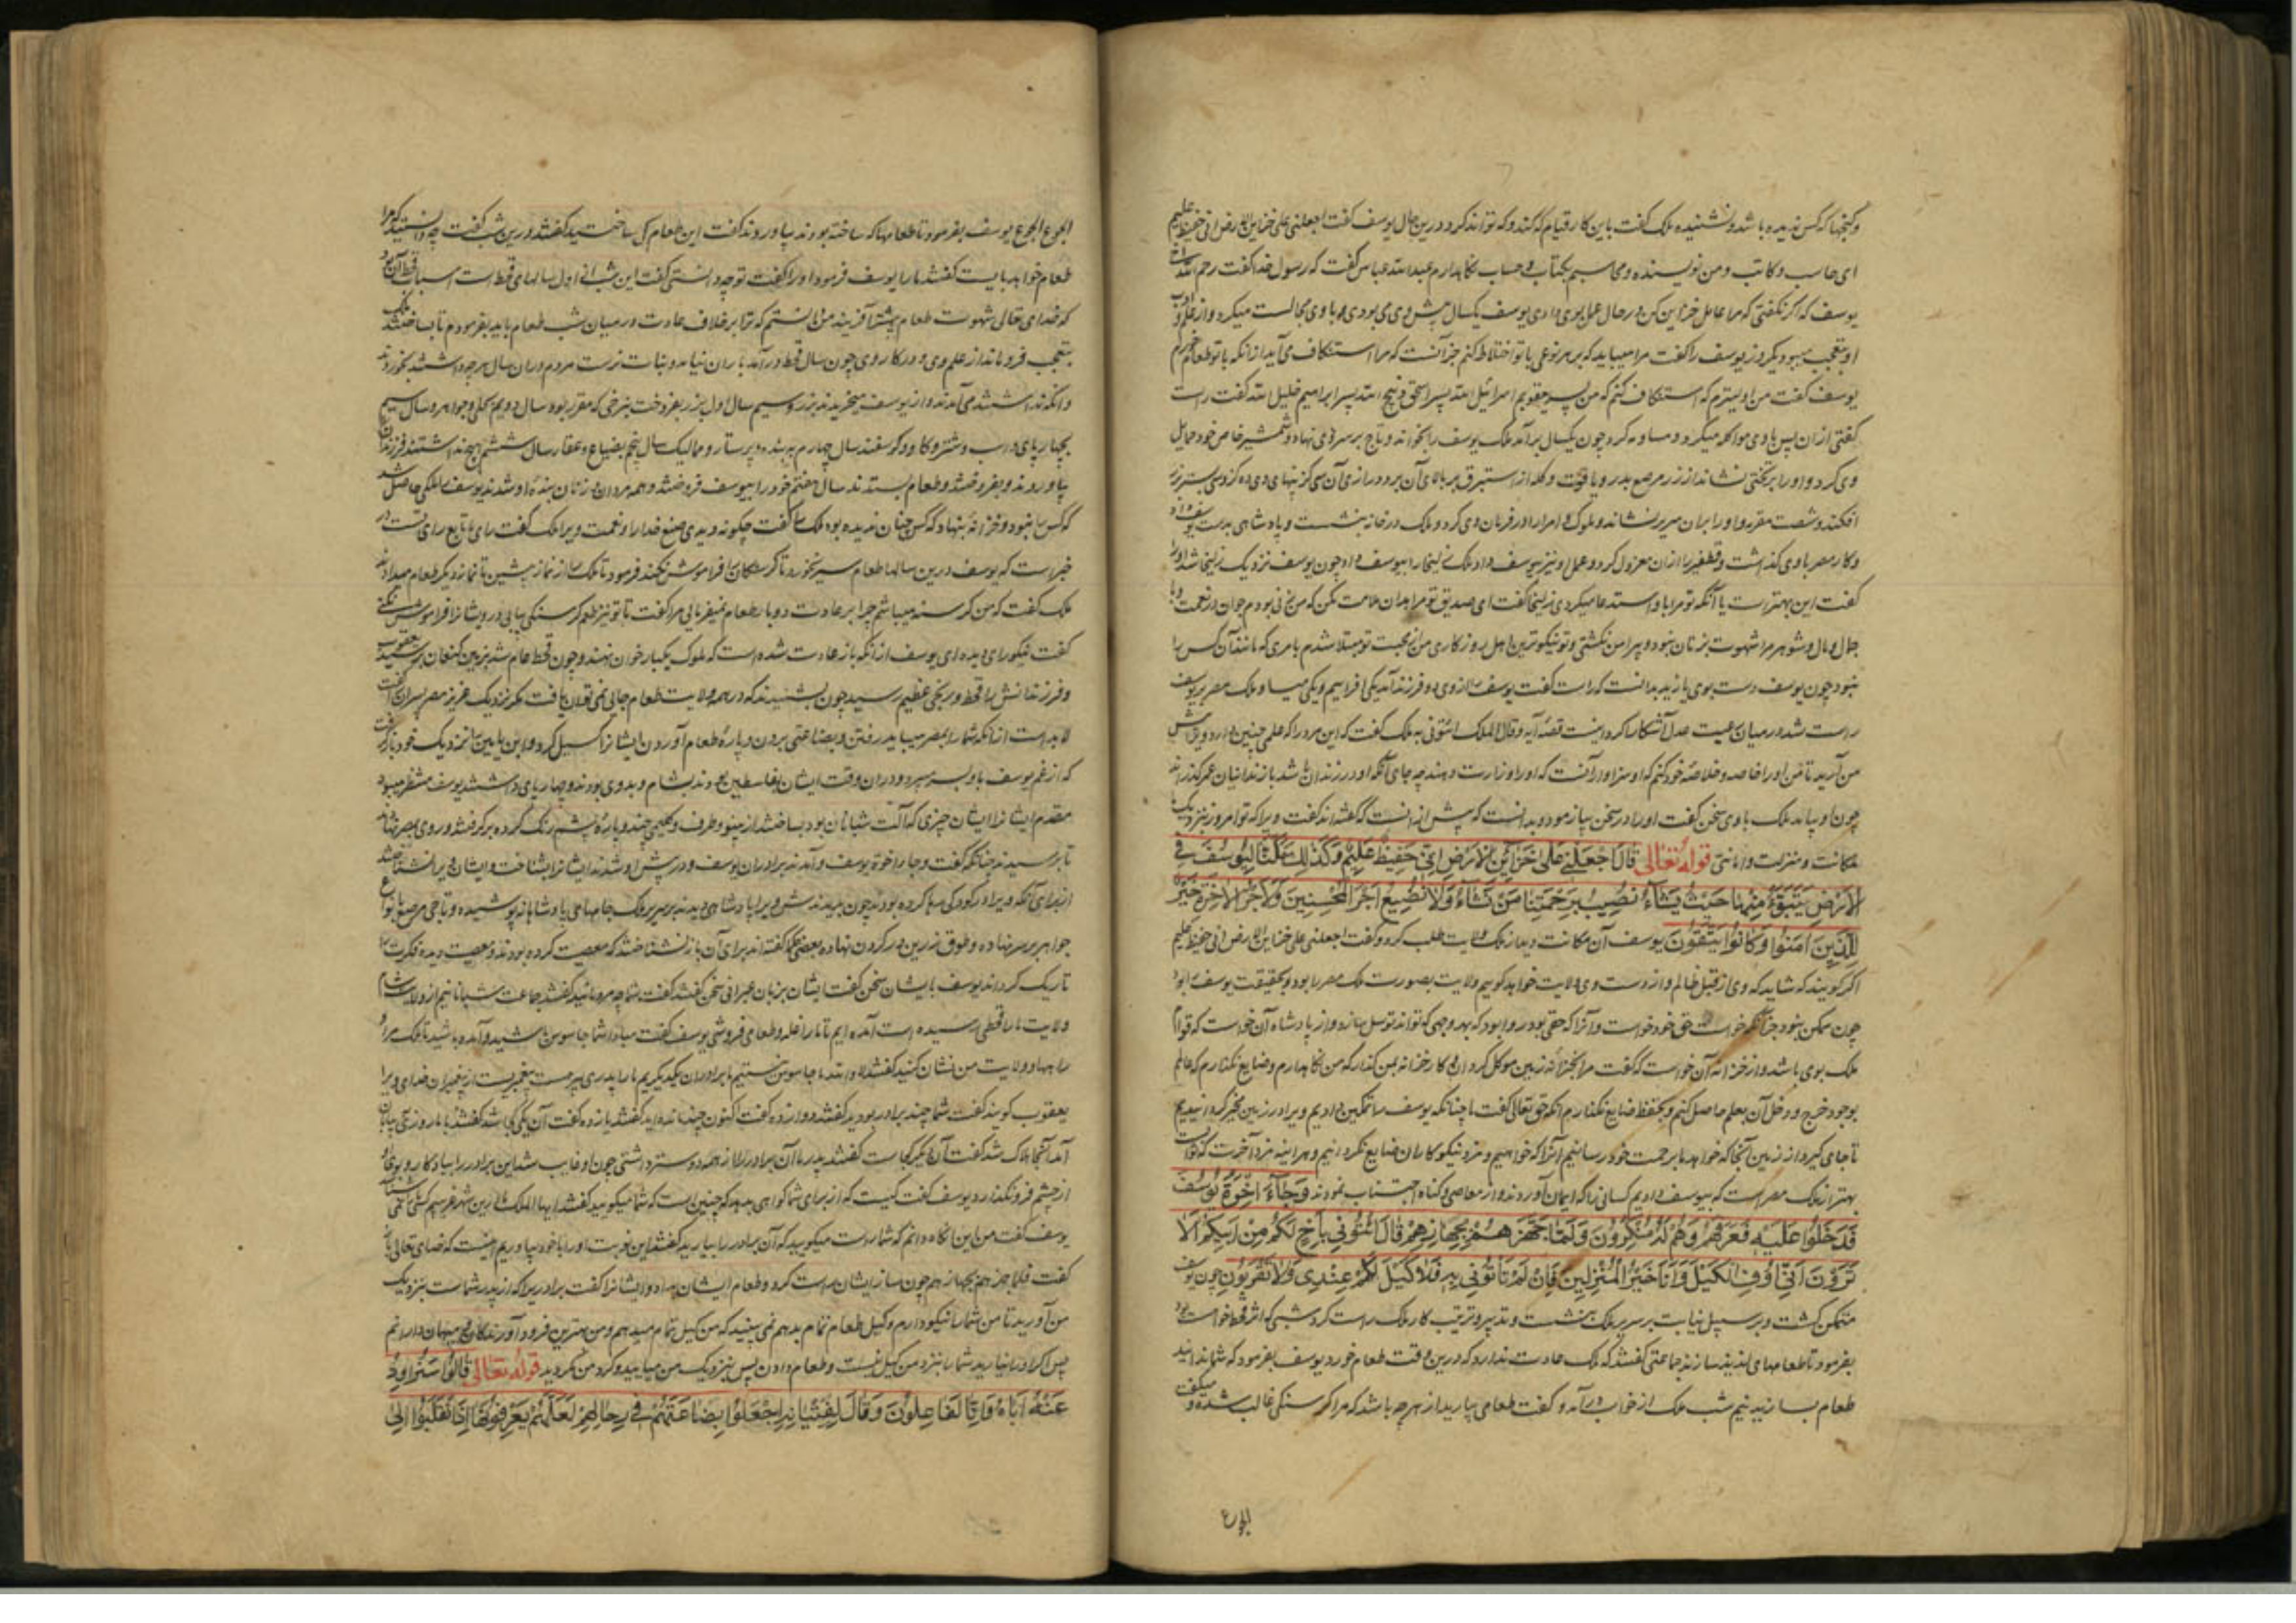 و کنجها که کس ندیده باشد و نشنیده ملک گفت باین کار قیام که کند و که تواند کرد درین حال یوسف گفت اجعلنی علی خزاین الارض انی حفیظ علیم
ای حاسب و کاتب و من نویسنده و محاسبم بکتاب و حساب نگاهدارم عبدالله عباس گفت که رسول خدا گفت رحم الله
یوسف که اگر نگفتی که مرا عامل خزاین کن در حال عمل بوی دادی یوسف یکسال پیش وی می بودی و با وی مجالست میکرد و از علم و ادب
او بتعجب میبود یکروز یوسف را گفت مرا میباید که بهر نوعی با تو اختلاط کنم جز آنست که مرا استنکاف می آید از آنکه با تو طعام خورم
یوسف گفت من اولیترم که استنکاف کنم که من پسر یعقوبم اسرائیل الله پسر اسحق ذبیح الله پسر ابراهیم خلیل الله گفت راست
گفتی از ان پس با وی مواکله میکرد و مساوه کرد چون یکسال بر آمد ملک یوسف را بخواند و تاج بر سر وی نهاد و شمشیر خاص خود حمایل
وی کرد و او را بر تختی نشاند از زر مرصع بدر و یاقوت و کله از استبرق بر بالای آن برد درازی آن سی گز پهنا وی ده گز و سی بستر بر
افکند و شصت مقرمه او را بران سریر نشاند و ملوک و امرا را در فرمان وی کرد و ملک در خانه بنشست و پادشاهی بدست یوسف داد
و کار مصر با وی گذاشت و قطفیر را از ان معزول کرد و عمل وی نیز بیوسف داد ملک زلیخا را بیوسف داد چون یوسف نزدیک زلیخا شد او را
گفت این بهتر است یا آنکه تو مرا با و استدعا میکردی زلیخا گفت ای صدیق تو مرا بدان ملامت مکن که من زنی بودم جوان در نعمت و با
جمال و مال و شوهر مرا شهوت بزنان نبود و پیرامن نگشتی و تو نیکوترین اهل روزگاری من از محبت تو مبتلا شدم بامری که مانند آن کس را
نبود چون یوسف دست بوی یازید بدانست که راست گفت یوسف را از وی دو فرزند آمد یکی افراییم و یکی میسا و ملک مصر بر یوسف
راست شد و در میان رعیت عدل آشکارا کرد اینست قصه آیه و قال الملک ائتونی به ملک گفت که این مرد را که علمی چنین دارد و پیش
من آرید تا من او را خاصه و خلاصه خود کنم که او سزاوار آنست که او را وزارت دهند چه جای آنکه او در زندان باشد با زندانیان عمر گذراند
چون او بیامد ملک با وی سخن گفت او را در سخن بیازمود و بدانست که بیش از انست که گفته اند گفت ویرا که تو امروز بنزدیک
مکانت و منزلت و امانتی قوله تعالی قَالَ اجْعَلْنِي عَلَى خَزَآئِنِ الْاَرْضِ اِنِّي حَفِيظٌ عَلِيمٌ وَكَذٰلِكَ مَكَّنَّا لِيُوسُفَ فِي
الْاَرْضِ يَتَبَوَّءُ مِنْهَا حَيْثُ يَشَآءُ نُصِيبُ بِرَحْمَتِنَا مَنْ نَشَآءُ وَلَا نُضِيعُ اَجْرَ الْمُحْسِنِينَ وَلَاَجْرُ الْاٰخِرَةِ خَيْرٌ
لِلَّذِينَ اٰمَنُوا وَكَانُوا يَتَّقُونَ یوسف آن مکانت دید از ملک ولایت طلب کرد و گفت اجعلنی علی خزاین الارض انی حفیظ علیم
اگر گویند که شاید که وی از قبل ظالم و از دست وی ولایت خواهد گوییم ولایت بصورت ملک مصر را بود و بحقیقت یوسف را بود
چون ممکن نبود جز آنکه خواست حق خود خواست و آنرا که حقی بود روا بود که بهر وجهی که تواند توسل سازد و از پادشاه آن خواست که قوام
ملک بوی باشد و از خزانه آن خواست که گفت مرا بخزائن زمین موکل گردان و کار خزانه بمن گذار که من نگاهدارم و ضایع نگذارم که عالم
بوجوه خرج و دخل آن بعلم حاصل کنم و بحفظ ضایع نگذارم آنکه حق تعالی گفت ما چنانکه یوسف را تمکین دادیم و برا در زمین مخیر گردانیدیم
تا جای گیرد از زمین آنجا که خواهد ما برحمت خود رسانیم آنرا که خواهیم و مزد نیکوکاران ضایع نگردانیم و هر آینه مزد آخرت که ثوابست
بهتر از ملک مصر است که بیوسف دادیم کسانی را که ایمان آوردند و از معاصی و گناه اجتناب نمودند وَجَآءَ اِخْوَةُ يُوسُفَ
فَدَخَلُوا عَلَيْهِ فَعَرَفَهُمْ وَهُمْ لَهُ مُنْكِرُونَ وَلَمَّا جَهَّزَهُمْ بِجَهَازِهِمْ قَالَ ائْتُونِي بِاَخٍ لَكُمْ مِنْ اَبِيكُمْ اَلَا
تَرَوْنَ اَنِّي اُوفِ الْكَيْلَ وَاَنَا خَيْرُ الْمُنْزِلِينَ فَاِنْ لَمْ تَاْتُونِي بِهِ فَلَا كَيْلَ لَكُمْ عِنْدِي وَلَا تَقْرَبُونِ چون یوسف
متمکن گشت و بر سبیل نیابت بر سریر ملک بنشست و تدبیر و ترتیب کار ملک راست کرد شبی که اثر قحط خواست بود
بفرمود تا طعامهای لذیذ سازند جماعتی گفتند که ملک عادت ندارد که درین وقت طعام خورد یوسف بفرمود که شما ندانید
طعام بسازید نیم شب ملک از خواب در آمد و گفت طعامی بیارید از هر چه باشد که مرا گرسنگی غالب شده و میگفت
الجوع
الجوع الجوع یوسف بفرمود تا طعامها که ساخته بودند بیاوردند گفت این طعام کی ساختید گفتند درین شب گفت چه دانستید که مرا
طعام خواهد بایست گفتند ما را یوسف فرمود او را گفت تو چه دانستی گفت این شب از اول سالهای قحط است اسباب قحط آن بود
که خدای تعالی شهوت طعام بیشتر آفریند من دانستم که ترا بر خلاف عادت در میان شب طعام باید بفرمودم تا بساختند ملک
بتعجب فرو ماند از علم وی و در کار وی چون سال قحط در آمد باران نیامد و نبات نرست مردم دران سال هر چه داشتند بخوردند
و آنکه نداشتند می آمدند و از یوسف میخریدند بزر و سیم سال اول بزر بفروخت بنرخی که مقرر بود سال دویم بحلی و جواهر و سال سیم
بچهارپای و اسب و شتر و گاو و گوسفند سال چهارم به بنده و پرستار و ممالیک سال پنجم بضیاع و عقار سال ششم هیچ نداشتند فرزندان
بیاوردند و بفروختند و طعام بستدند سال هفتم خود را بیوسف فروختند و همه مردان و زنان بنده او شدند یوسف را ملکی حاصل شد
که کس را نبود و خزانه بنهاد که کس چنان ندیده بود ملک را گفت چگونه دیدی صنع خدا را و نعمت ویرا ملک گفت رای ما تابع رای تست در
خبر است که یوسف درین سالها طعام سیر نخورد تا گرسنگان را فراموش نکند فرمود تا ملک را از نماز پیشین تا نماز دیگر طعام میدادند
ملک گفت که من گرسنه میباشم چرا بر عادت دو بار طعام نمیفرمایی مرا گفت تا تو نیز طعم گرسنگی بیابی درویشانرا فراموش نکنی
گفت نیکو رای دیده ای یوسف از آنکه باز عادت شده است که ملوک یکبار خوان نهند و چون قحط عام شد بزمین کنعان رسید یعقوب
و فرزندانش را قحط و رنجی عظیم رسید چون بشنیدند که در همه ولایت طعام جایی نمی توان یافت مگر نزدیک عزیز مصر پسران را گفت
لابد است از آنکه شما را بمصر میباید رفتن و بضاعتی بردن و پاره طعام آوردن ایشانرا گسیل کرد و ابن یامین را نزدیک خود باز گرفت
که از غم یوسف با و بسر میبرد و دران وقت ایشان بفلسطین بودند بشام و بدوی بودند و چهارپای داشتند یوسف منتظر میبود
مقدم ایشانرا ایشان چیزی که آلت شبانان بود بساختند از پینو و ظرف و گلیمی چند و پاره پشم رنگ کرده برگرفتند و روی بمصر نهادند
تا برسیدند چنانکه گفت و جاء اخوة یوسف و آمدند برادران یوسف و در پیش او شدند ایشانرا بشناخت و ایشان ویرا نشناختند
از برای آنکه ویرا در کودکی رها کرده بودند چون بدیدندش ویرا پادشاهی دیدند بر سریر ملک جامهای پادشاهانه پوشیده و تاجی مرصع بانواع
جواهر بر سر نهاده و طوق زرین در گردن نهاده بعضی علما گفته اند برای آن باز نشناختند که معصیت کرده بودند و معصیت دیده فکرت را
تاریک کرداند یوسف با ایشان سخن گفت ایشان بزبان عبرانی سخن گفتند گفت شما چه مردمانید گفتند جماعت شبانانیم از ولایت شام
ولایت ما را قحطی رسیده است آمده ایم تا ما را غله و طعامی فروشی یوسف گفت مبادا شما جاسوس باشید و آمده باشید تا ملک مرا و
راهها و ولایت من نشان کنید گفتند لا والله ما جاسوس نیستیم ما برادران یکدیگریم ما را پدری پیرست پیغمبریست از پیغمبران خدای ویرا
یعقوب گویند گفت شما چند برادر بودید گفتند دوازده گفت اکنون چند مانده اید گفتند یازده گفت آن یکی کجا شد گفتند با ما روزی ببیابان
آمد آنجا هلاک شد گفت آن دیگر کجاست گفتند پدر ما آن برادر را از همه دوستر داشتی چون او غایب شد این برادر را بیادگار و بوی او
از چشم فرو نگذارد یوسف گفت کیست که از برای شما گواهی بدهد که چنین است که شما میگویید گفتند ایها الملک ما درین شهر غریبیم کسی ما را نمی شناسد
یوسف گفت من این انگاه دانم که شما راست میگویید که آن برادر را بیارید گفتند این نوبت او را با خود بیاوریم اینست که خدای تعالی
گفت فلما جهزهم بجهازهم چون ساز ایشان راست کرد و طعام ایشان بداد و ایشانرا گفت برادریرا که از پدر شماست بنزدیک
من آورید تا من شما را نیکو دارم و کیل طعام تمام بدهم نمی بینید که من کیل تمام میدهم و من بهترین فرود آورندگان و میهمان دارانم
پس اگر او را نیارید شما را بنزد من کیل نیست و طعام دادن پس بنزدیک من میایید و گرد من مگردید قوله تعالی قَالُوا سَنُرَاوِدُ
عَنْهُ اَبَاهُ وَاِنَّا لَفَاعِلُونَ وَقَالَ لِفِتْيَانِهِ اجْعَلُوا بِضَاعَتَهُمْ فِي رِحَالِهِمْ لَعَلَّهُمْ يَعْرِفُونَهَا اِذَا انْقَلَبُوا اِلٰى